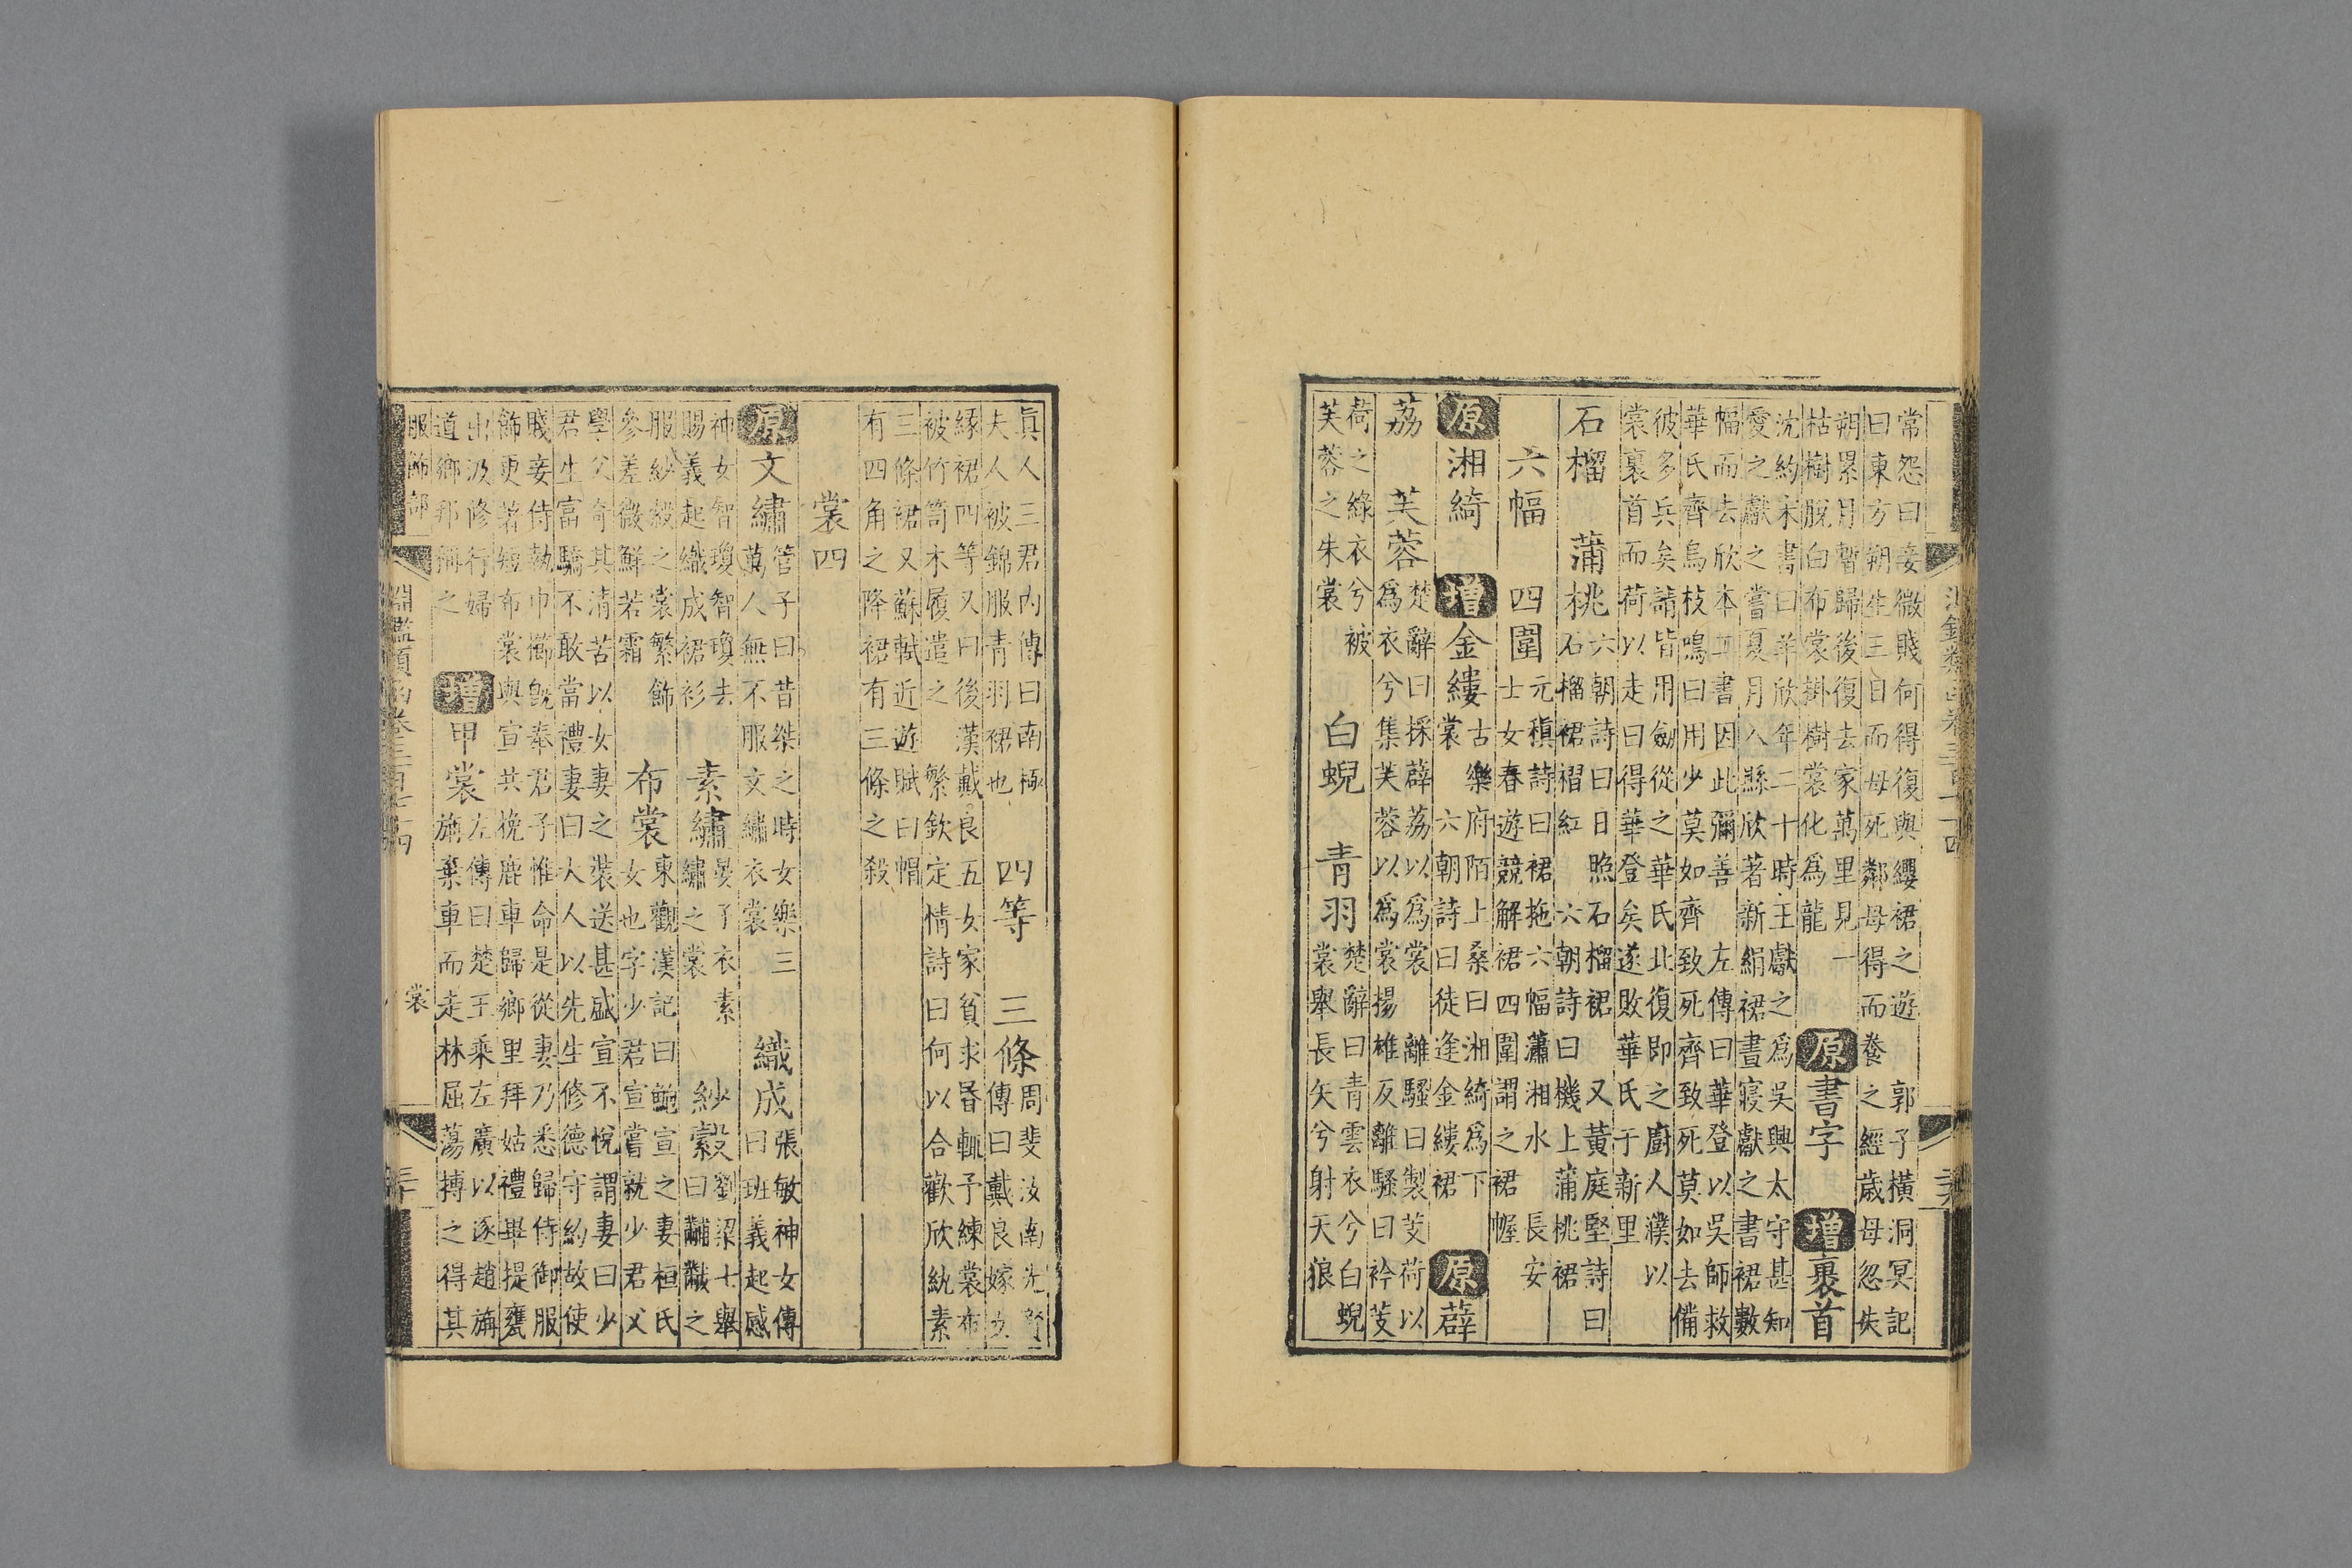 常怨曰妾微賤何得復與纓裙之遊 郭子橫洞冥記
曰東方朔生三日而母死鄰母得而養之經歲母忽失
朔累月暫歸後復去家萬里見一
枯樹脫白布裳掛樹裳化為龍
原書字 增裹首
沈約宋書曰羊欣年二十時王獻之為吳興太守甚知
愛之獻之嘗夏月入縣欣著新絹裙晝寢獻之書裙數
幅而去欣本工書因此彌善 左傳曰華登以吳師救
華氏齊烏枝鳴曰用少莫如齊致死齊致死莫如去備
彼多兵矣請皆用劔從之華氏北復即之廚人濮以
裳裹首而荷以走曰得華登矣遂敗華氏于新里
石榴 蒲桃
六朝詩曰日照石榴裙 又黃庭堅詩曰
石榴裙褶紅 六朝詩曰機上蒲桃裙
六幅 四圍
元稹詩曰裙拖六幅瀟湘水 長安
士女春遊競解裙四圍謂之裙幄
原湘綺 增金縷
古樂府陌上桑曰湘綺為下
裳 六朝詩曰徒逢金縷裙
原薜
荔 芙蓉
楚辭曰採薜荔以為裳 離騷曰製芰荷以
為衣兮集芙蓉以為裳揚雄反離騷曰衿芰
荷之綠衣兮被
芙蓉之朱裳
白蜺 青羽
楚辭曰青雲衣兮白蜺
裳舉長矢兮射天狼
真人三君內傳曰南極
夫人被錦服青羽裙也
四等 三條
周斐汝南先賢
傳曰戴良嫁女
緣裙四等又曰後漢戴良五女家貧求昬輒予練裳布
被竹笥木履遣之 繁欽定情詩曰何以合歡欣紈素
三條裙又蘇軾近遊賦曰帽
有四角之降裙有三條之殺
裳四
原文繡
管子曰昔桀之時女樂三
萬人無不服文繡衣裳
織成
張敏神女傳
曰班義起感
神女智瓊智瓊去
賜義起織成裙衫
素繡
晏子衣素
繡之裳
紗縠
劉梁七舉
曰黼黻之
服紗縠之裳繁飾
參差微鮮若霜
布裳
東觀漢記曰鮑宣之妻桓氏
女也字少君宣嘗就少君父
學父奇其清苦以女妻之裝送甚盛宣不悅謂妻曰少
君生富驕不敢當禮妻曰大人以先生修德守約故使
賤妾侍執巾櫛旣奉君子惟命是從妻乃悉歸侍御服
飾更著短布裳與宣共挽鹿車歸鄉里拜姑禮畢提甕
出汲修行婦
道鄉邦稱之
增甲裳
左傳曰楚王乘左廣以逐趙旃
旃棄車而走林屈蕩搏之得其
服飾部
裳
淵鑑類函卷三百七十四